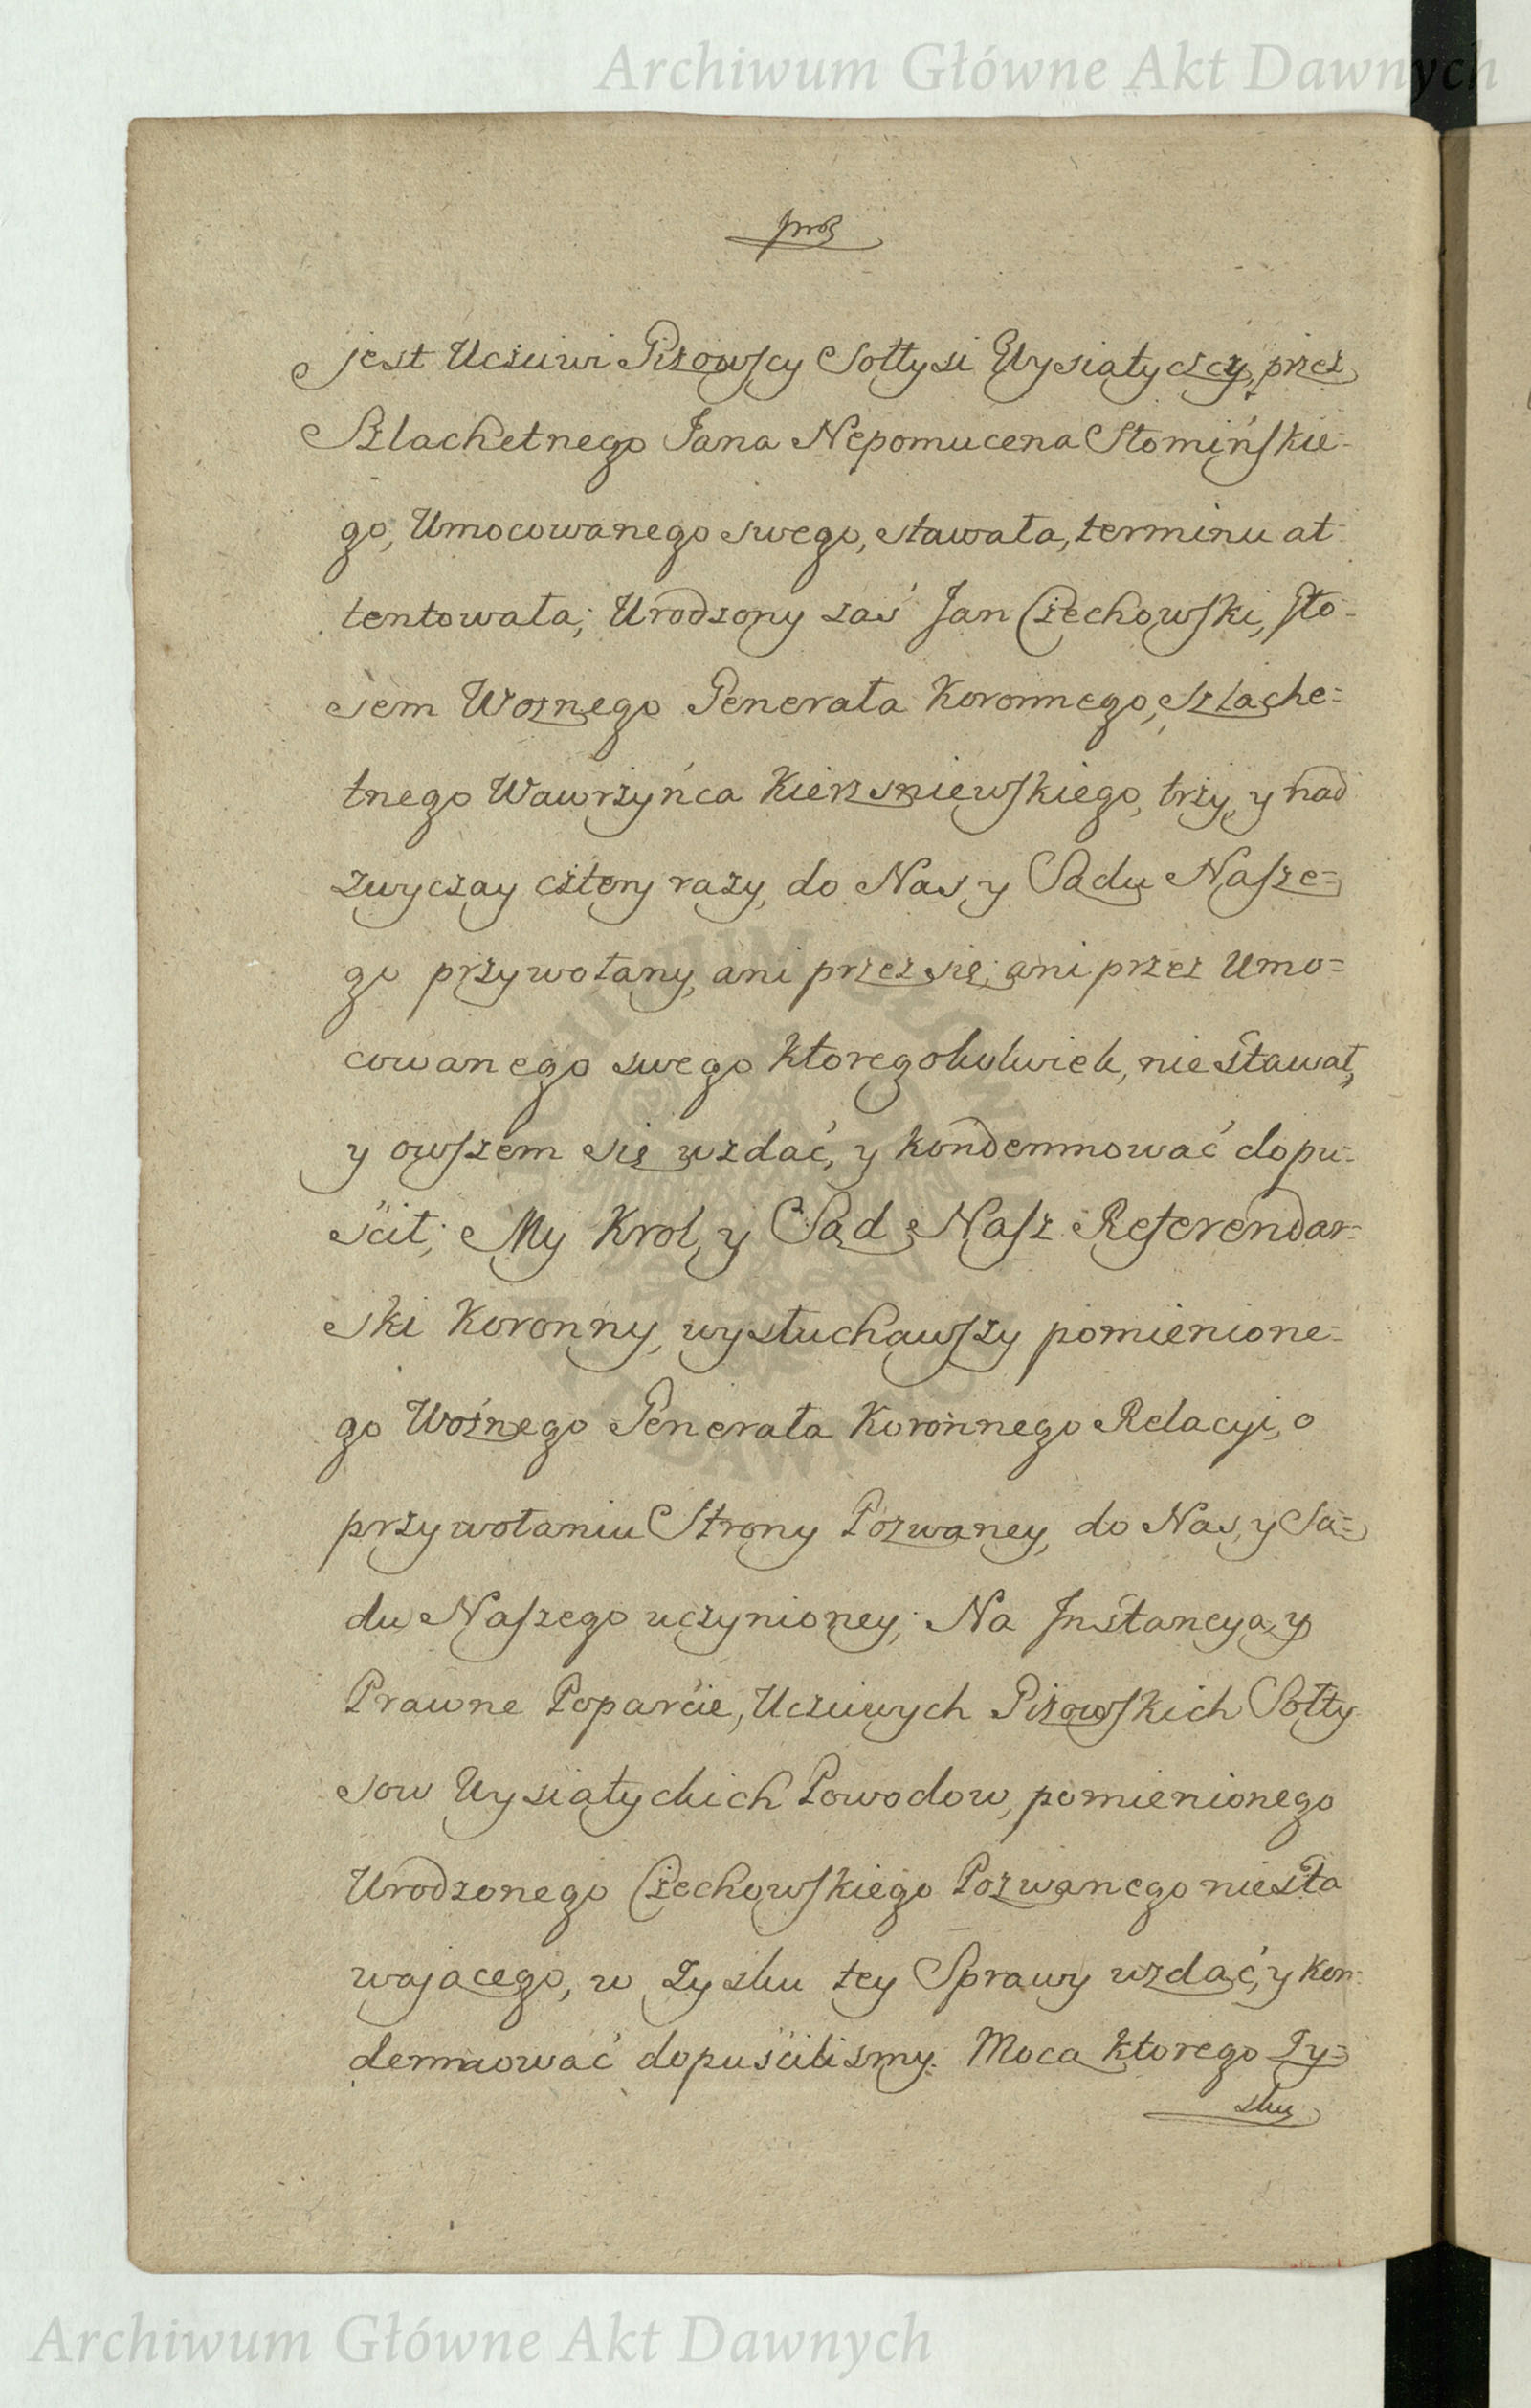 Archiwum Główne Akt Dawnych
jest Uczciwi Pizowscy Sołtysi Wysiatyczcy, przez
Szlachetnego Jana Nepomucena Słomińskie-
go, Umocowanego swego, stawała, terminu at-
tentowała; Urodzony zaś Jan Czechowski, Gło-
sem Woznego Generała Koronnego, Szlache=
tnego Wawrzyńca Kierzsniewskiego, trzy, y nad
zwyczay cztery razy, do Nas y Sądu Nasze=
go przywołany, ani przez się, ani przez Umo=
cowanego swego ktoregokolwiek, nie stawał,
y owszem się wzdać, y kondemnować dopu-
ścił; My Krol, y Sąd Nasz Referendar-
ski Koronny, wysłuchawszy pomienione=
go Woźnego Generała Koronnego Relacyi, o
przywołaniu Strony Pozwaney, do Nas, y Są=
du Naszego uczynioney; Na Instancyą, y
Prawne Poparcie, Uczciwych Pizowskich Sołty-
sow Uysiatyckich Powodow, pomienionego
Urodzonego Czechowskiego Pozwanego niesta
waiącego, w Zysku tey Sprawy wzdać, y kon-
demnować dopuścilismy. Mocą ktorego Zy=
sku
Archiwum Główne Akt Dawnych